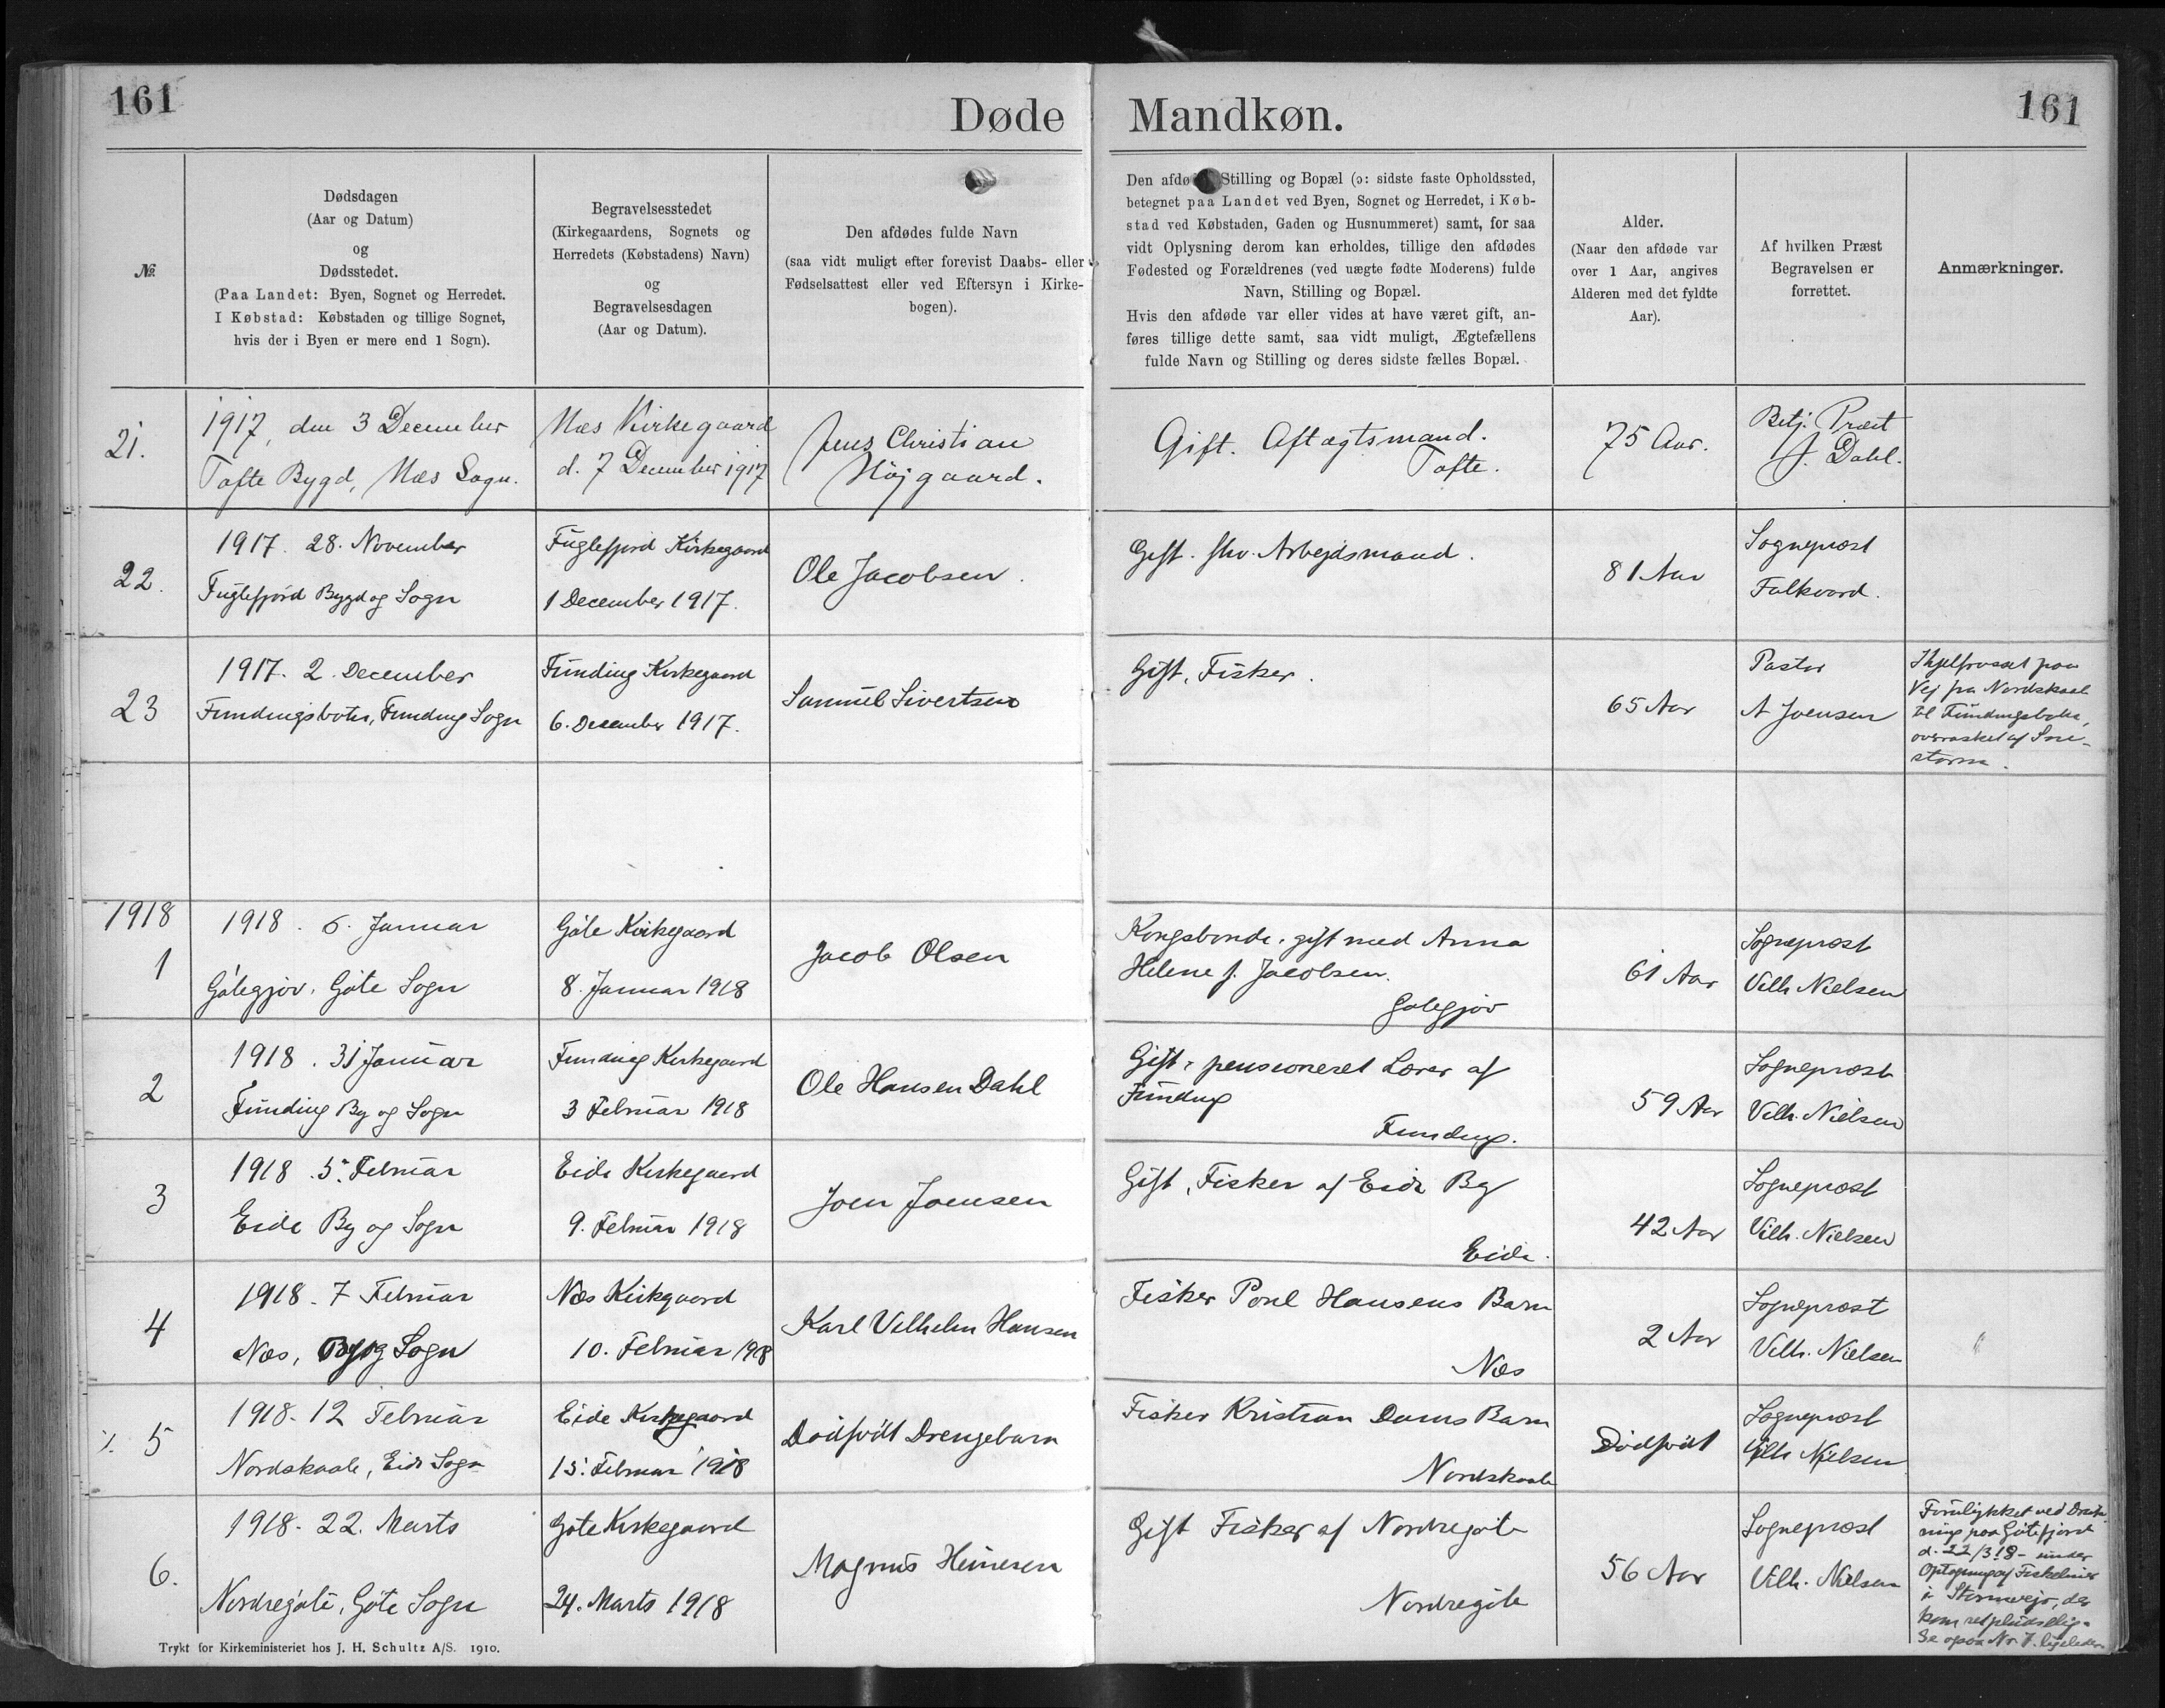 161
Døde Mandkøn.
161
№
Dødsdagen
(Aar og Datum)
og
Dødsstedet.
(Paa Landet: Byen, Sognet og Herredet.
I Købstad: Købstaden og tillige Sognet,
hvis der i Byen er mere end 1 Sogn).
Begravelsesstedet
(Kirkegaardens, Sognets og
Herredets (Købstadens) Navn)
og
Begravelsesdagen
(Aar og Datum).
Den afdødes fulde Navn
(saa vidt muligt efter forevist Daabs- eller
Fødselsattest eller ved Eftersyn i Kirke-
bogen).
Den afdø Stilling og Bopæl (ɔ: sidste faste Opholdssted,
betegnet paa Landet ved Byen, Sognet og Herredet, i Køb-
stad ved Købstaden, Gaden og Husnummeret) samt, for saa
vidt Oplysning derom kan erholdes, tillige den afdødes
Fødested og Forældrenes (ved uægte fødte Moderens) fulde
Navn, Stilling og Bopæl.
Hvis den afdøde var eller vides at have været gift, an-
føres tillige dette samt, saa vidt muligt, Ægtefællens
fulde Navn og Stilling og deres sidste fælles Bopæl.
Alder.
(Naar den afdøde var
over 1 Aar, angives
Alderen med det fyldte
Aar).
Af hvilken Præst
Begravelsen er
forrettet.
Anmærkninger.
21.
1917, den 3 December
Tofte Bygd, Næs Sogn.
Næs Kirkegaard
d. 7 December 1917
Jens Christian
Højgaard.
Gift. Aftægtsmand.
Tofte.
75 Aar.
Betj. Præst
J. Dahl.
22.
1917. 28. November
Fuglefjord Bygd og Sogn
Fuglefjord Kirkegaard
1 December 1917.
Ole Jacobsen.
Gift. fhv. Arbejdsmand.
81 Aar
Sognepræst
Falkvard.
23
1917. 2. December
Fundingsbotn, Funding Sogn
Funding Kirkegaard
6. December 1917.
Samuel Sivertsen
Gift, Fisker.
65 Aar
Pastor
A Joensen
Ihjelfrosset paa
Vej fra Nordskaale
til Fundingsbotn,
overrasket af Sne-
storm.
1918
1
1918. 6. Januar
Gótegjov. Góte Sogn
Góte Kirkegaard
8. Januar 1918
Jacob Olsen
Kongsbonde, gift med Anna
Helene f. Jacobsen.
Gotegjov
61 Aar
Sognepræst
Vilh Nielsen
2
1918. 31 Januar
Funding By og Sogn
Funding Kirkegaard
3 Februar 1918
Ole Hansen Dahl
Gift, pensioneret Lærer af
Funding
Funding.
59 Aar
Sognepræst
Vilh. Nielsen
3
1918. 5. Februar
Eide By og Sogn
Eide Kirkegaard
9. Februar 1918
Joen Joensen
Gift, Fisker af Eide By
Eide.
42 Aar
Sognepræst
Vilh. Nielsen
4
1918. 7 Februar
Næs, By og Sogn
Næs Kirkgaard
10. Februar 1918
Karl Vilhelm Hansen
Fisker Poul Hansens Barn
Næs
2 Aar
Sognepræst
Vilh. Nielsen
5
1918. 12 Februar
Nordskaale, Eide Sogn
Eide Kirkegaard
15. Februar 1918
Dødfødt Drengebarn
Fisker Kristian Dams Barn
Nordskaale
Dødfødt
Sognepræst
Vilh Nielsen
6.
1918. 22. Marts
Nordregóte, Góte Sogn
Gote Kirkegaard
24. Marts 1918
Magnus Heinesen
Gift Fisker af Nordregote
Nordregóte
56 Aar
Sognepræst
Vilh. Nielsen
Forulykket ved Drukning
paa Götefjord
d. 22/3 18 - under
Optagning af Fiskeliner
i Stormvejr, der
kom ret pludselig.
Se ogsaa Nr 7. ligeledes
Trykt for Kirkeministeriet hos J. H. Schultz A/S. 1910.